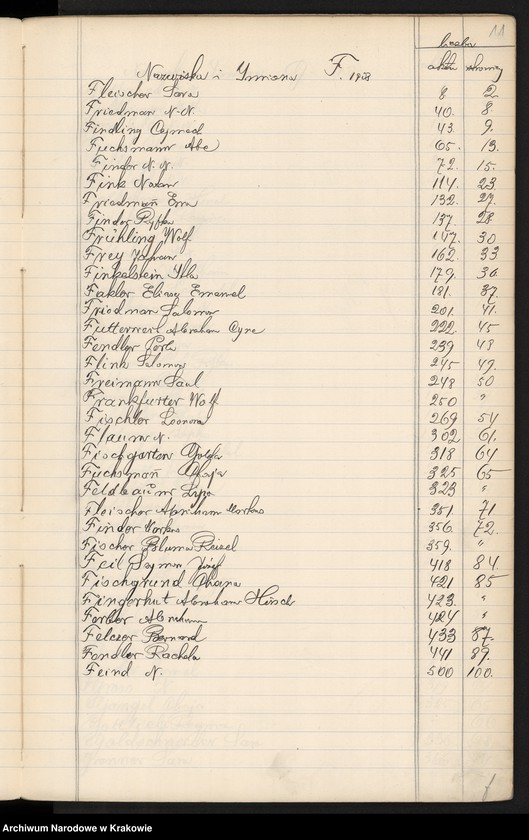 11
Liczba
Nazwiska i Imiona F. 1908 aktu strony
Fleischer Sara 8 2
Friedman N. N. 40. 8
Findling 43. 9.
Fuchsmann Abe 65. 13.
Finder N. N. 72. 15.
Fink Natan 114. 23
Friedman Ema 132. 27.
Finder Ryfka 137 28
Frühling Wolf 147. 30
Frey 162. 33
Finkelstein 179. 36
Faktor Eliasz Emanuel 181. 37
Friedman Salomon 201. 41.
Abraham 222. 45
Fendler Perla 239 48
Flink Salomon 245 49.
Freimann Saul 248 50
Frankfurter Wolf 250 "
Fischler Leonora 269 54
Flaum N. 302 61.
Fischgarten Golda 318 64
Fuchsman Chaja 325 65
323 "
Fleischer Abraham Markus 351 71
Finder Markus 356 72.
Fischer Bluma Reisel 359. "
Feil Józef 418 84
Fischgrund Chana 421 85
Fingerhut Abraham Hirsch 423. "
Ferber Abraham 424 "
Felczer Bernard 433 87.
Fendler Rachela 441 89.
Feind N. 500 100.
Archiwum Narodowe w Krakowie